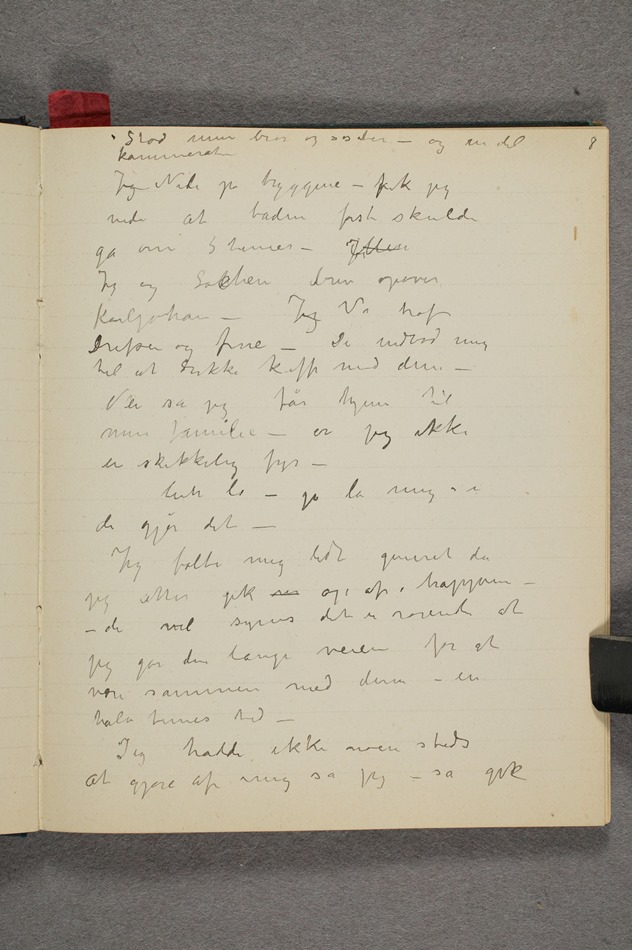 Stod min bror og søster – og en del 8
kammerater
Jeg Nede på bryggene – fik jeg
vide at båden først skulde
gå om 5 timer –
Jeg og Søkken drev opover
Karljohan – Jeg Vi traf
Drefsen og frue – De indbød mig
til at drikke kaffe med dem –
Nei sa jeg får hjem til
min familie – er jeg ikke
en skikkelig fyr –
hun lo – jo la mig se
de gjør det –
Jeg følte mig lidt generet da
jeg atter gik op af trappen –
– de vil synes det er rørende at
jeg går den lange veien for at
være sammen med dem – en
halv times tid –
Jeg hadde ikke noen steds
at gjøre af mig sa jeg – så gik